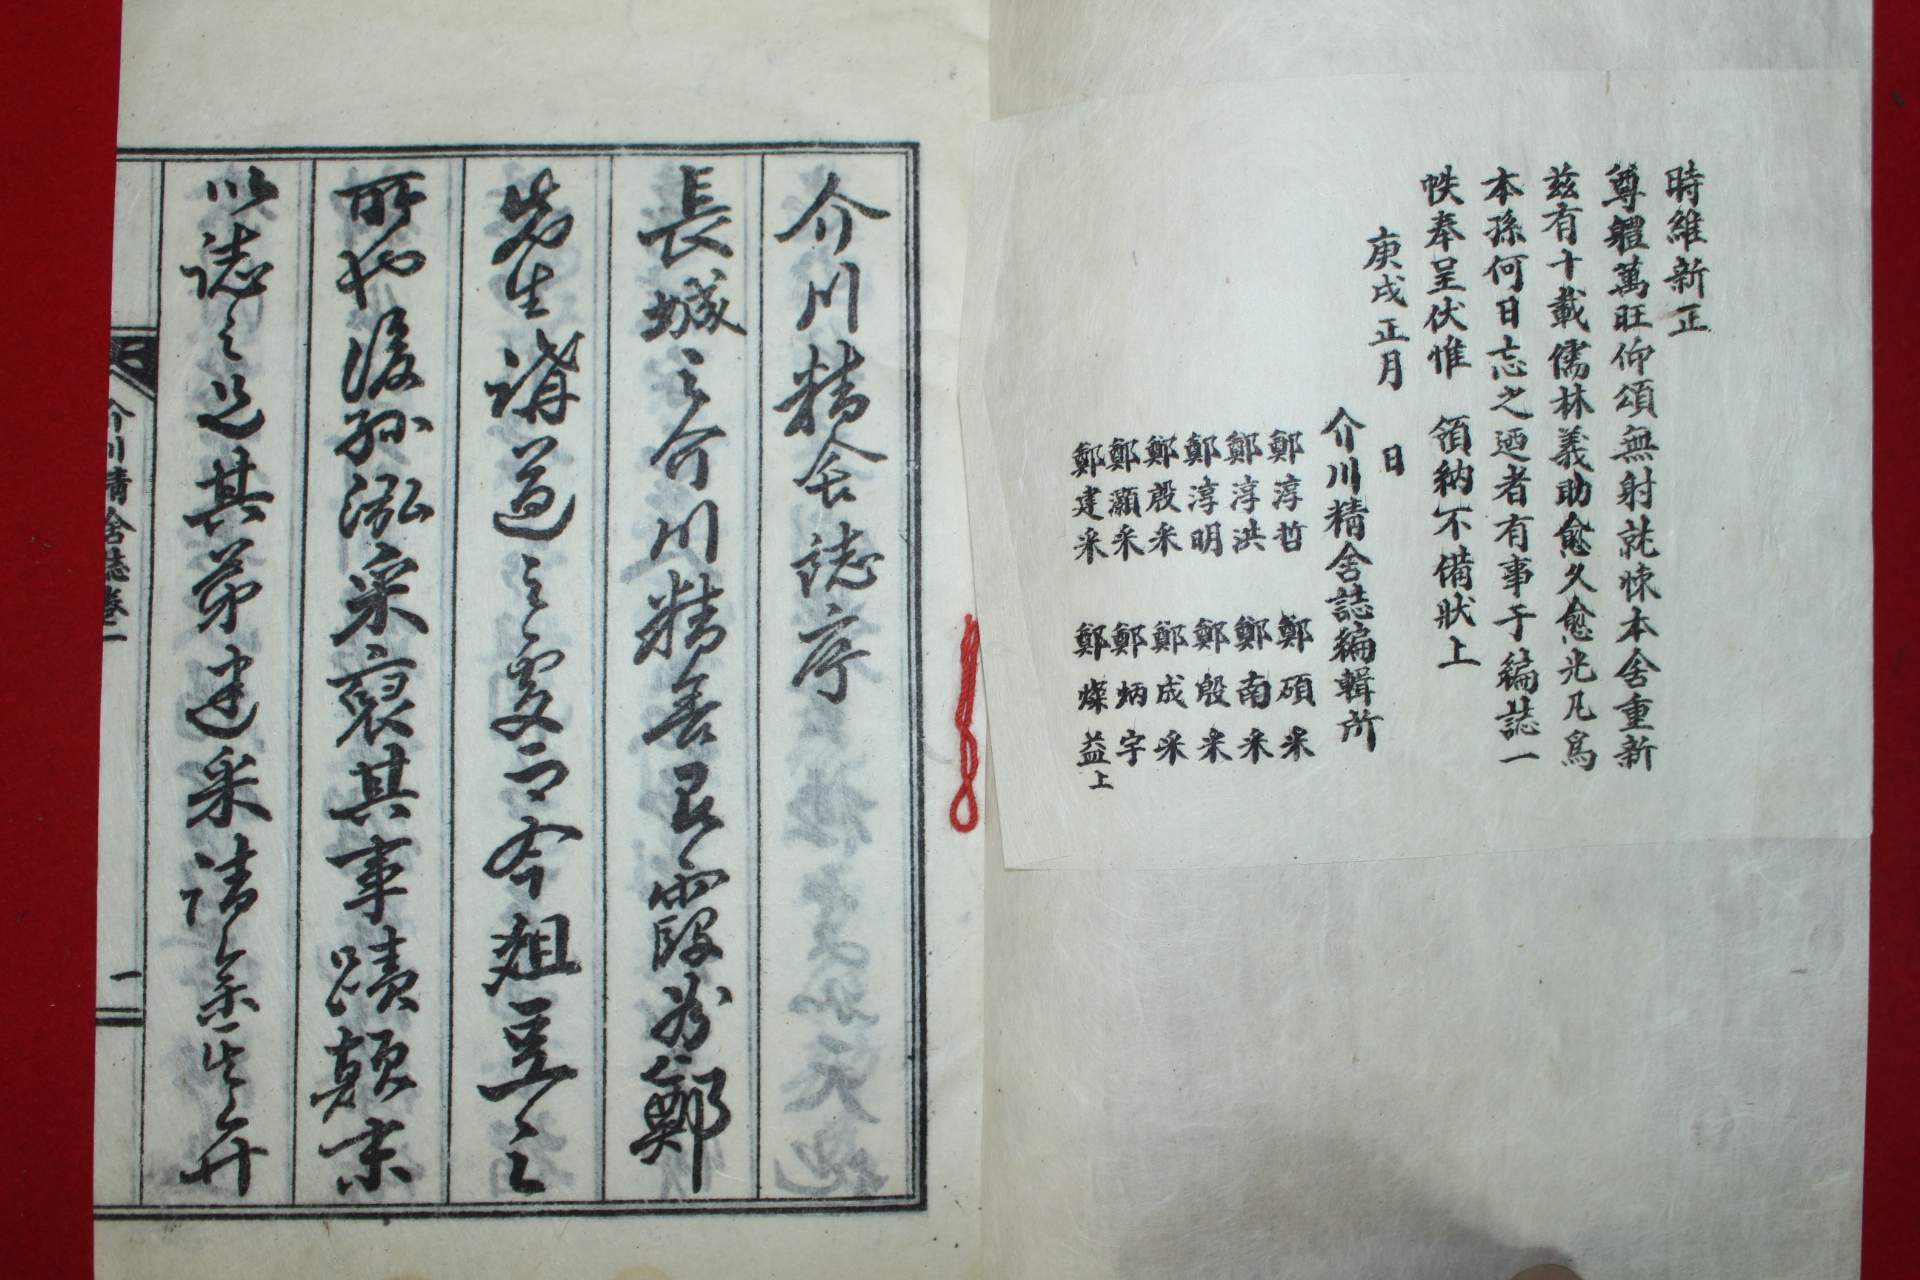 時維新正
尊體萬旺仰頌無射就悚本舍重新
玆有十載儒林義助愈久愈光凡爲
本孫何日忘之迺者有事于編誌一
帙奉呈伏惟 領納不備狀上
庚戌正月 日
介川精舍誌編輯所
鄭淳哲 鄭碩采
鄭淳洪 鄭南采
鄭淳明 鄭殷采
鄭殷采 鄭成采
鄭灝采 鄭炳宇
鄭建采 鄭燦益上
介川精舍誌序
長城之介川精舍昰霞谷鄭
先生講道之處而今俎豆之
所也後孫泓采裒其事蹟顚末
以誌之造其弟建采請余一言弁
介川精舍誌卷一
一